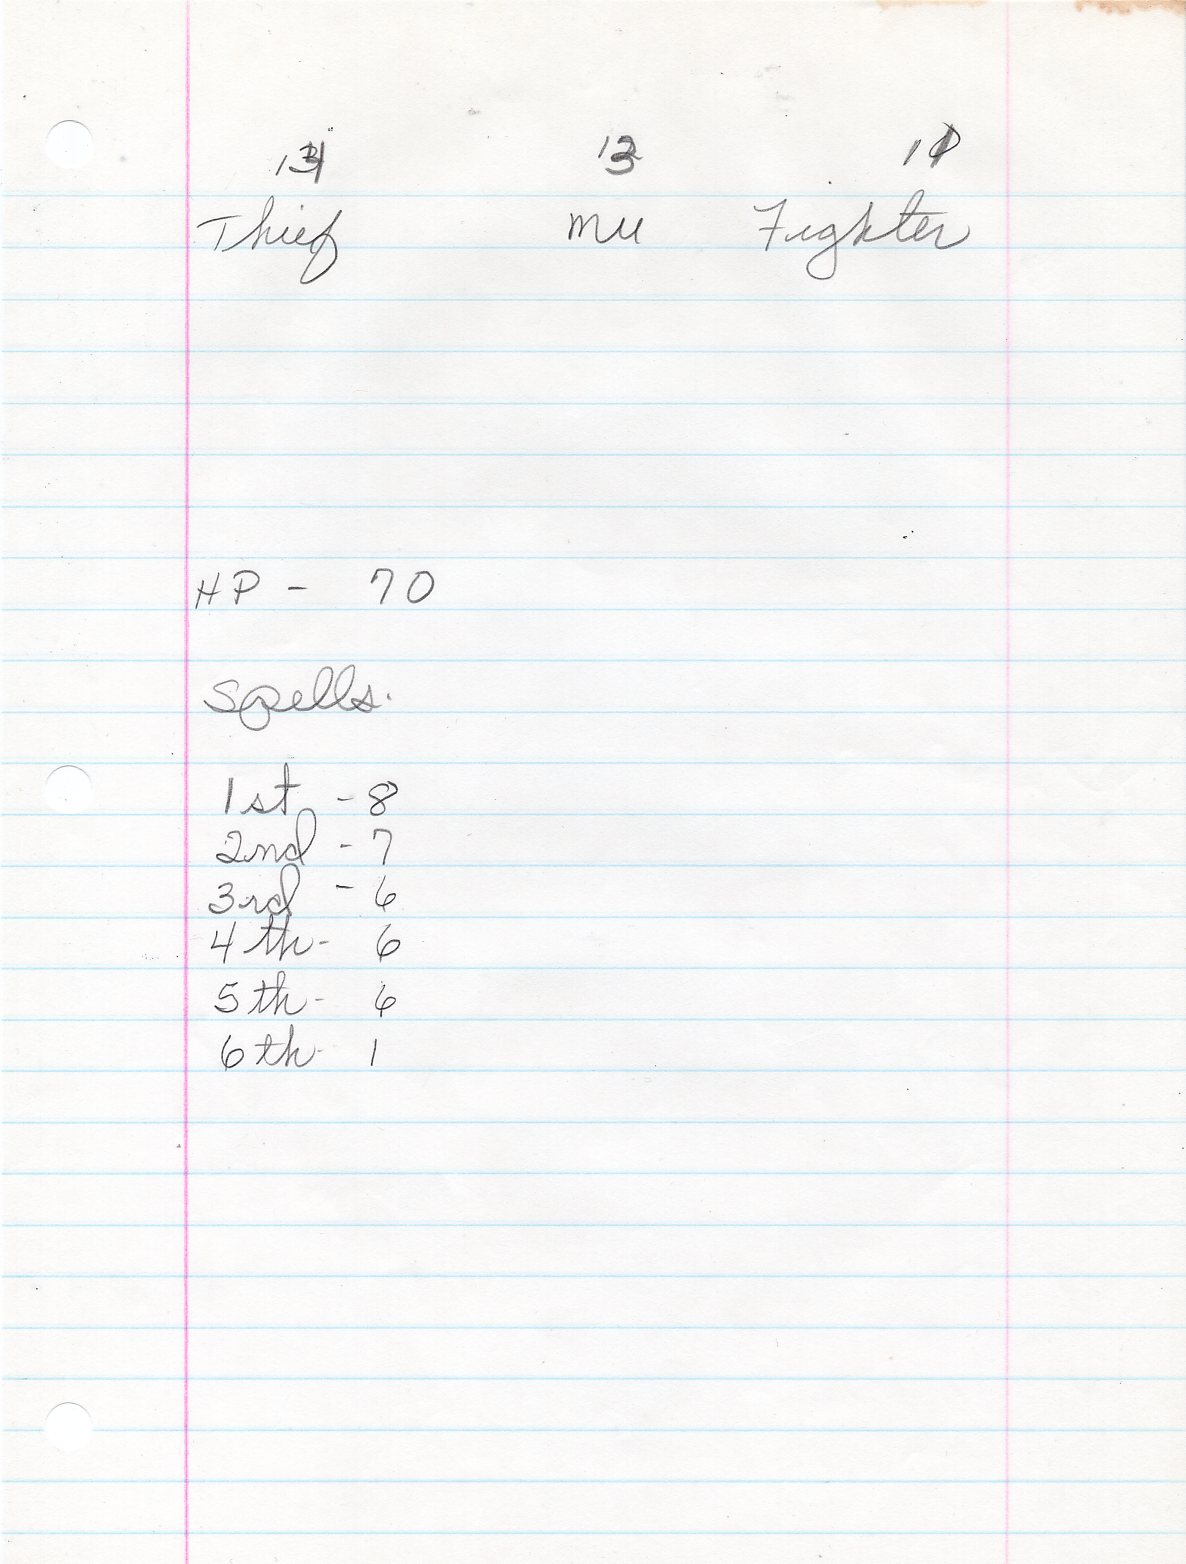 14 13 11
Thief mu Fighter
HP - 70
Spells.
1st - 8
2nd - 7
3rd - 6
4th - 6
5th - 6
6th - 1